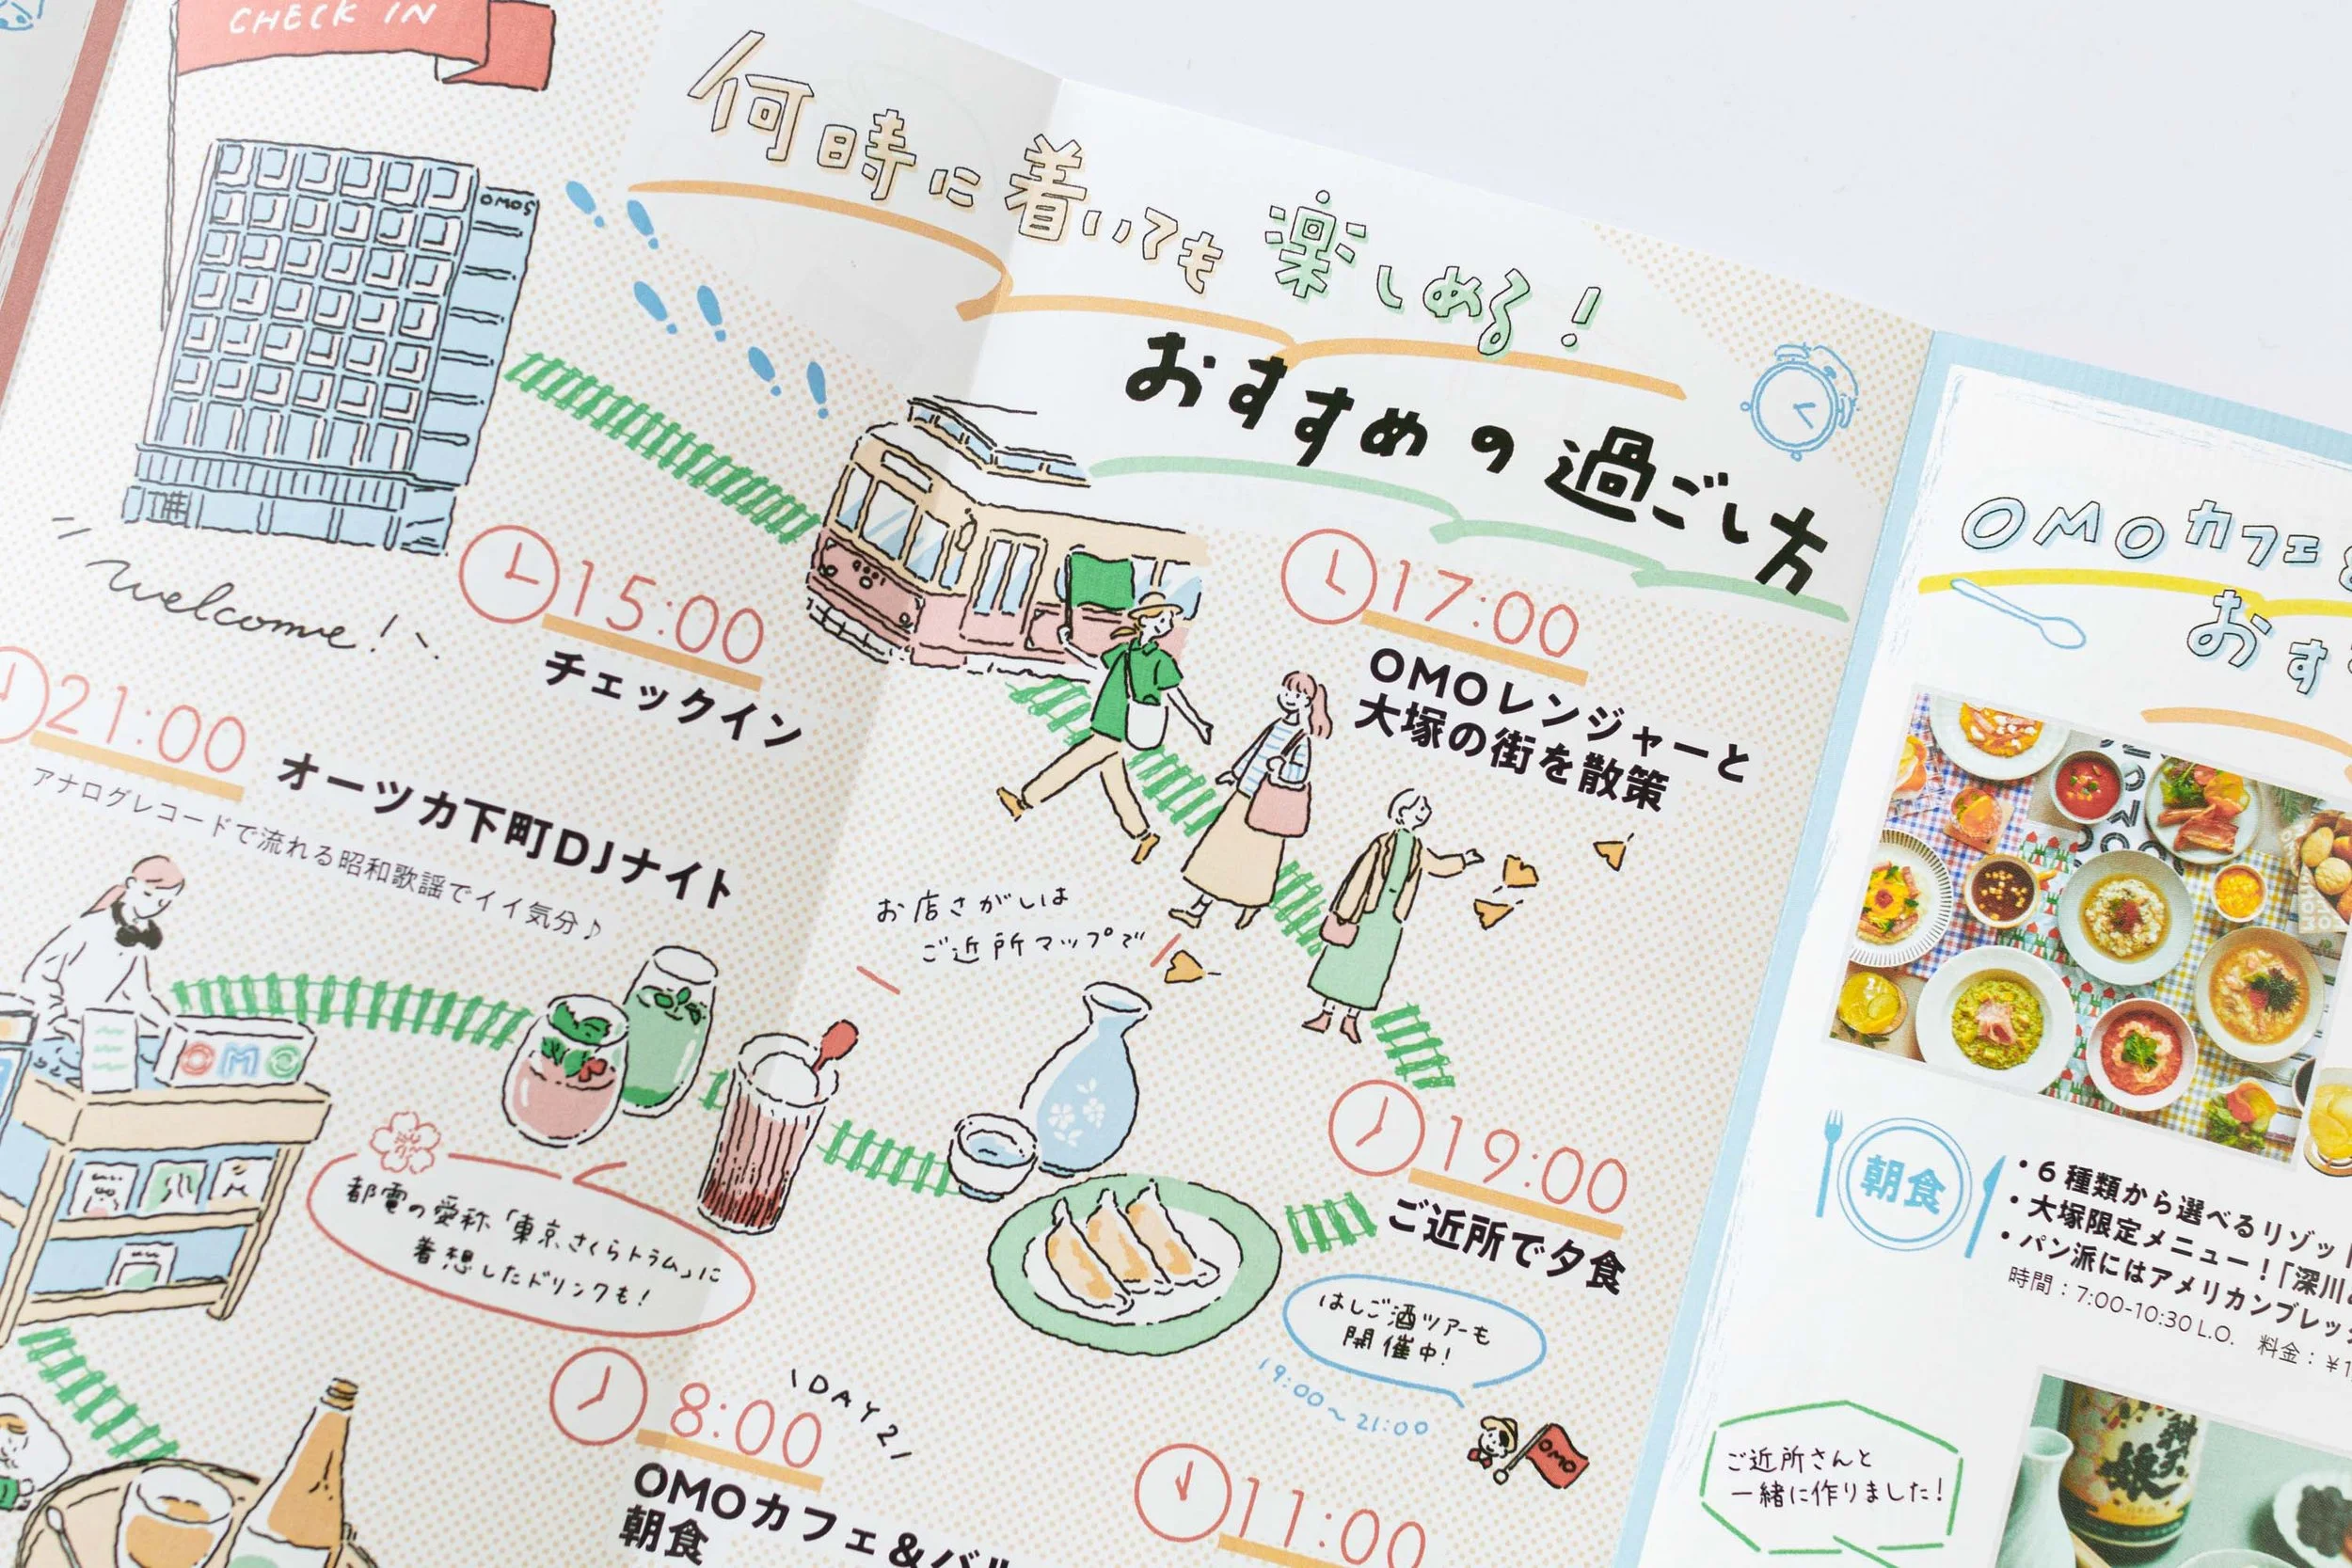 CHECK IN
何時に着いても楽しめる!
おすすめの過ごし方
OMO5
welcome!
15:00
チェックイン
17:00
OMOレンジャーと
大塚の街を散策
21:00
オーツカ下町DJナイト
アナログレコードで流れる昭和歌謡でイイ気分♪
お店さがしは
ご近所マップで
OMO
都電の愛称「東京さくらトラム」に
着想したドリンクも!
19:00
ご近所で夕食
はしご酒ツアーも
開催中!
19:00〜21:00
OMO
\DAY2/
8:00
OMOカフェ&バル
朝食
11:00
OMOカフェ&
おす
朝食
・6種類から選べるリゾット
・大塚限定メニュー!「深川
・パン派にはアメリカンブレッ
時間:7:00-10:30 L.O. 料金:¥1,
ご近所さんと
一緒に作りました!
娘